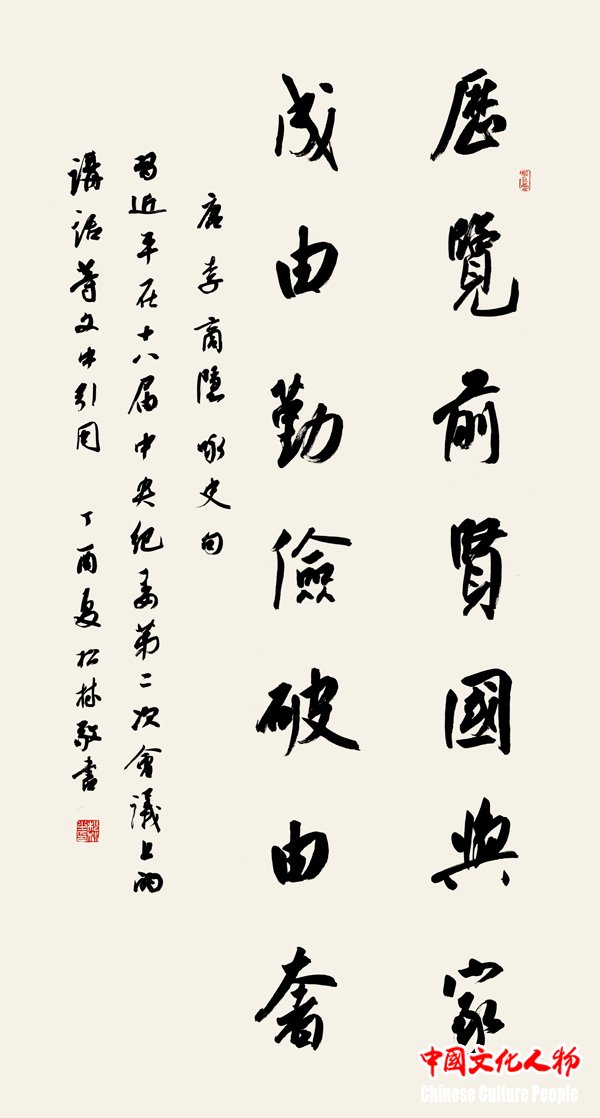 歷覽前賢國與家
成由勤儉破由奢
唐李商隱咏史句
習近平在十八届中央纪委第二次會議上的
講話等文中引用 丁酉夏松林敬書
中國文化人物
Chinese Culture People